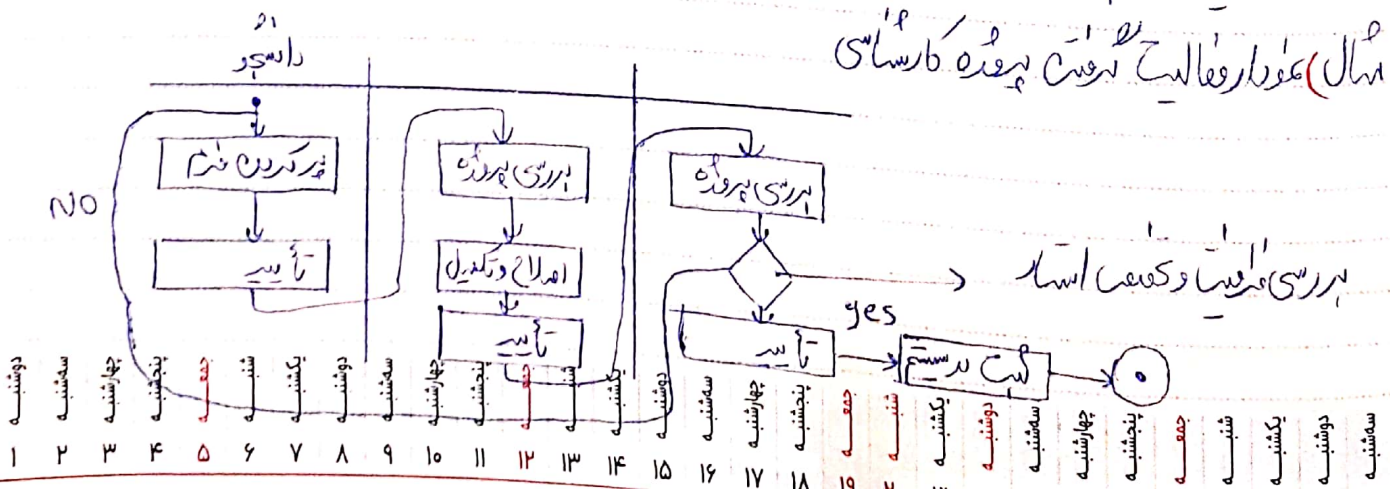 مثال) نمودار فعالیت گرفتن پروژه کارشناسی
دانشجو
پر کردن فرم
تأیید
بررسی پروژه
اصلاح و تکمیل
تأیید
بررسی پروژه
بررسی ظرفیت و
تأیید
NO
yes
ثبت در سیستم
دوشنبه سه‌شنبه چهارشنبه پنجشنبه جمعه شنبه یکشنبه دوشنبه سه‌شنبه چهارشنبه پنجشنبه جمعه شنبه یکشنبه دوشنبه سه‌شنبه چهارشنبه پنجشنبه جمعه شنبه یکشنبه دوشنبه سه‌شنبه چهارشنبه پنجشنبه جمعه شنبه یکشنبه دوشنبه سه‌شنبه
۱ ۲ ۳ ۴ ۵ ۶ ۷ ۸ ۹ ۱۰ ۱۱ ۱۲ ۱۳ ۱۴ ۱۵ ۱۶ ۱۷ ۱۸ ۱۹